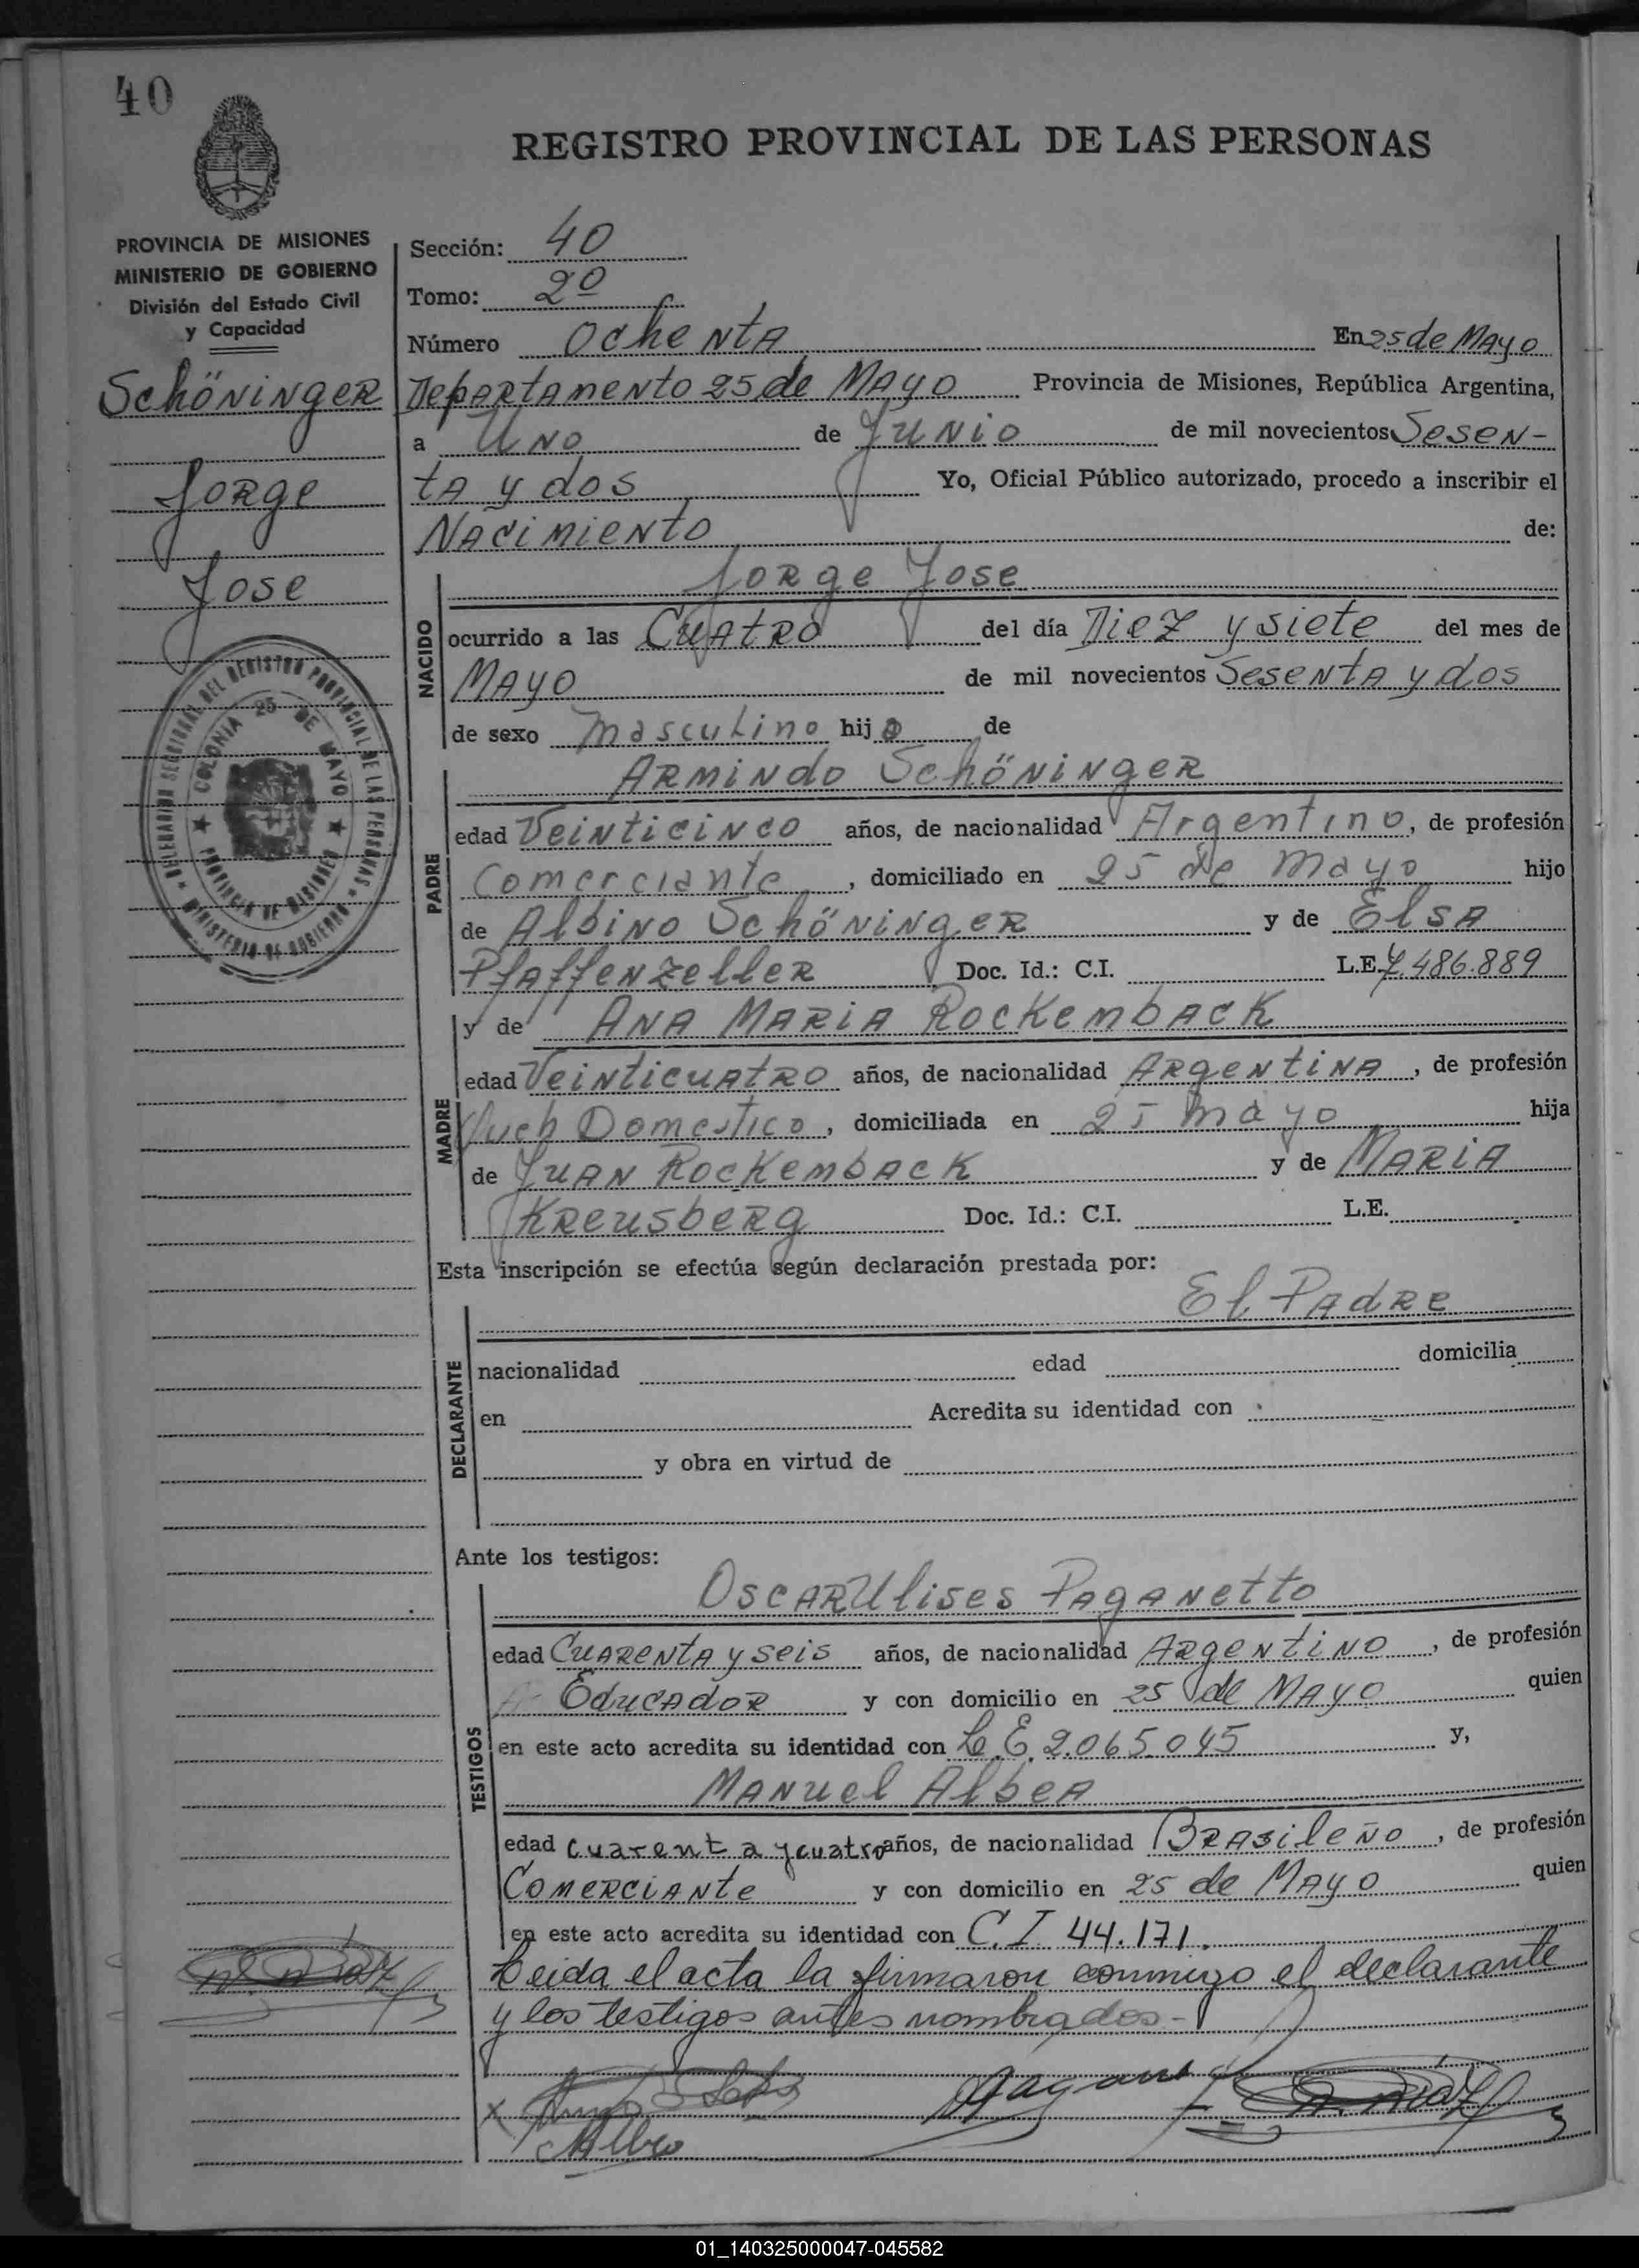 40
REGISTRO PROVINCIAL DE LAS PERSONAS
PROVINCIA DE MISIONES
MINISTERIO DE GOBIERNO
División del Estado Civil
y Capacidad
Schöninger
Jorge
Jose
COLONIA 25 DE MAYO
PROVINCIA DE MISIONES
MINISTERIO DE GOBIERNO
Sección: 40
Tomo: 2º
Número Ochenta En 25 de Mayo
Departamento 25 de Mayo Provincia de Misiones, República Argentina,
a Uno de Junio de mil novecientos Sesen-
ta y dos Yo, Oficial Público autorizado, procedo a inscribir el
Nacimiento de:
NACIDO
Jorge Jose
ocurrido a las Cuatro del día Diez y siete del mes de
Mayo de mil novecientos Sesenta y dos
de sexo masculino hijo de
PADRE
Armindo Schöninger
edad Veinticinco años, de nacionalidad Argentino, de profesión
Comerciante, domiciliado en 25 de Mayo hijo
de Albino Schöninger y de Elsa
Pfaffenzeller Doc. Id.: C.I. L.E. 7.486.889
MADRE
y de Ana Maria Rockemback
edad Veinticuatro años, de nacionalidad Argentina, de profesión
Domestico, domiciliada en 25 Mayo hija
de Juan Rockemback y de Maria
Kreusberg Doc. Id.: C.I. L.E.
Esta inscripción se efectúa según declaración prestada por:
El Padre
DECLARANTE
nacionalidad edad domicilia
en Acredita su identidad con
y obra en virtud de
Ante los testigos:
TESTIGOS
Oscar Ulises Paganetto
edad Cuarenta y seis años, de nacionalidad Argentino, de profesión
Educador y con domicilio en 25 de Mayo quien
en este acto acredita su identidad con L.E. 2.065.045 y,
Manuel Albea
edad cuarenta y cuatro años, de nacionalidad Brasileño, de profesión
Comerciante y con domicilio en 25 de Mayo quien
en este acto acredita su identidad con C.I. 44.171.
Leida el acta la firmaron conmigo el declarante
y los testigos antes nombrados-
01_140325000047-045582